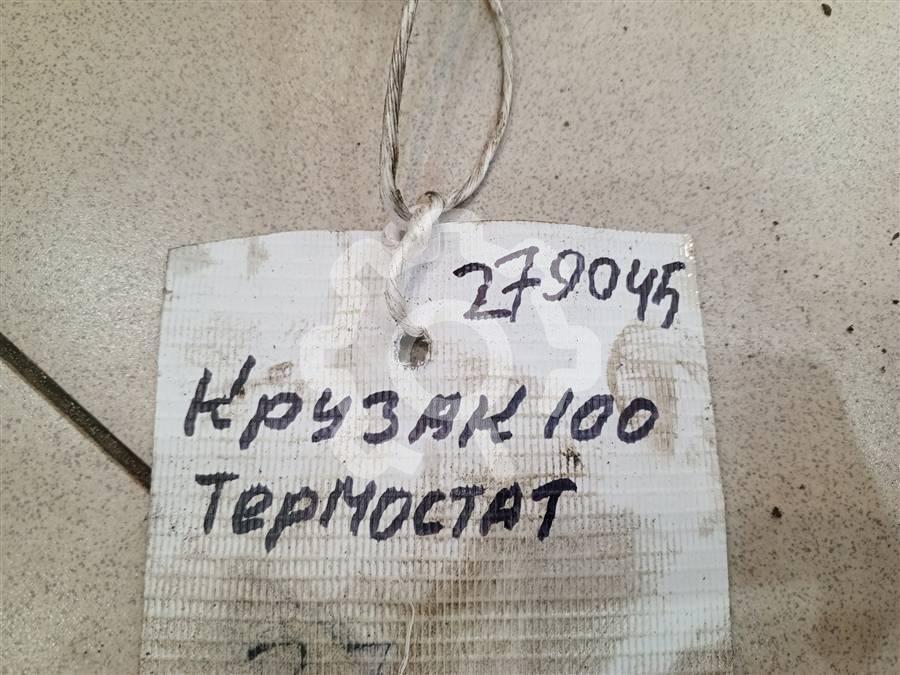 279045
Крузак 100
Термостат